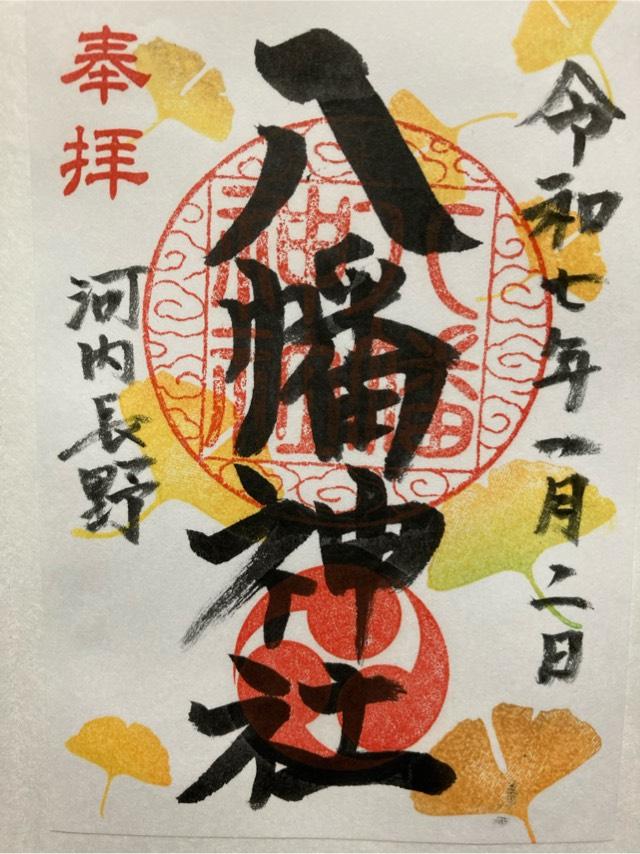 令和七年一月二日
八幡神社
奉拝
河内長野
八幡
神社